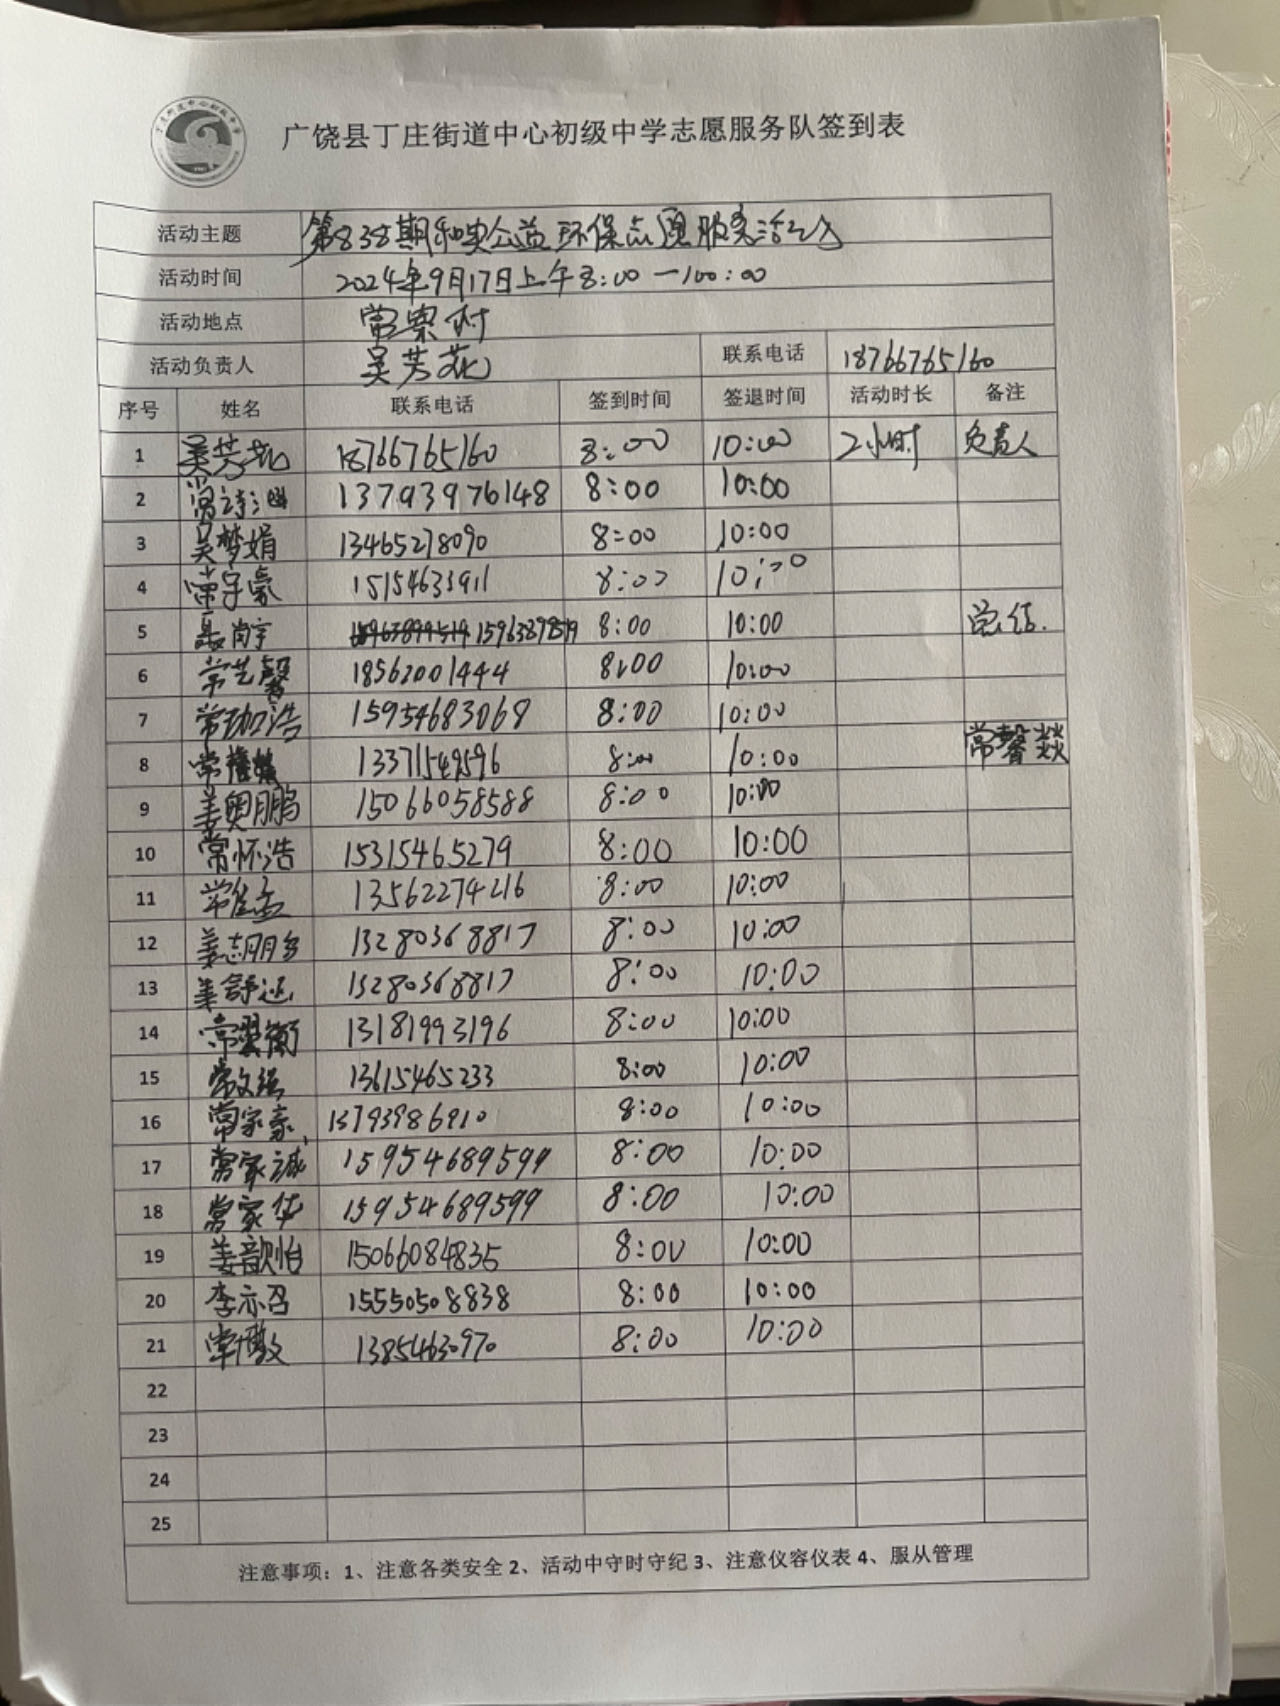 广饶县丁庄街道中心初级中学志愿服务队签到表
活动主题 第838期和美公益环保志愿服务活动
活动时间 2024年9月17日上午8:00一100:00
活动地点 常寨村
活动负责人 吴芳花 联系电话 18766765160
序号 姓名 联系电话 签到时间 签退时间 活动时长 备注
1 吴芳花 18766765160 8:00 10:00 2小时 负责人
2 13793976148 8:00 10:00
3 吴梦娟 13465278090 8:00 10:00
4 常宇豪 15154633911 8:00 10:00
5 聂尚宇 15963897519 8:00 10:00 总结.
6 常艺馨 18562001444 8:00 10:00
7 常珈浩 15954683068 8:00 10:00
8 13371549596 8:00 10:00 常馨燚
9 姜奥鹏 15066058588 8:00 10:00
10 常怀浩 15315465279 8:00 10:00
11 13562274216 8:00 10:00
12 13280368817 8:00 10:00
13 姜舒远 13280368817 8:00 10:00
14 13181993196 8:00 10:00
15 13615465233 8:00 10:00
16 常家豪 13793986910 8:00 10:00
17 常家诚 15954689599 8:00 10:00
18 常家华 15954689599 8:00 10:00
19 姜歆怡 15066084835 8:00 10:00
20 李亦召 15550508838 8:00 10:00
21 13854630970 8:00 10:00
22
23
24
25
注意事项：1、注意各类安全 2、活动中守时守纪 3、注意仪容仪表 4、服从管理